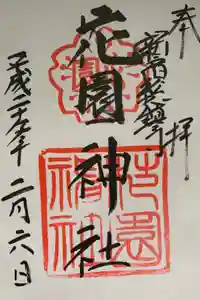 奉拝
新宿総鎮守
花園神社
平成二十五年二月六日